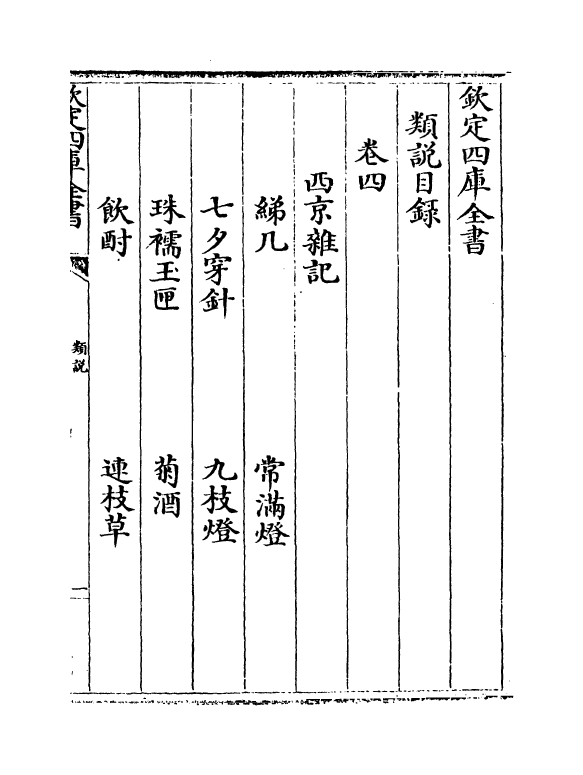 欽定四庫全書
類說目録
卷四
西京雜記
綈几 常滿燈
七夕穿針 九枝燈
珠襦玉匣 菊酒
飲酎 連枝草
欽定四庫全書 類説 一